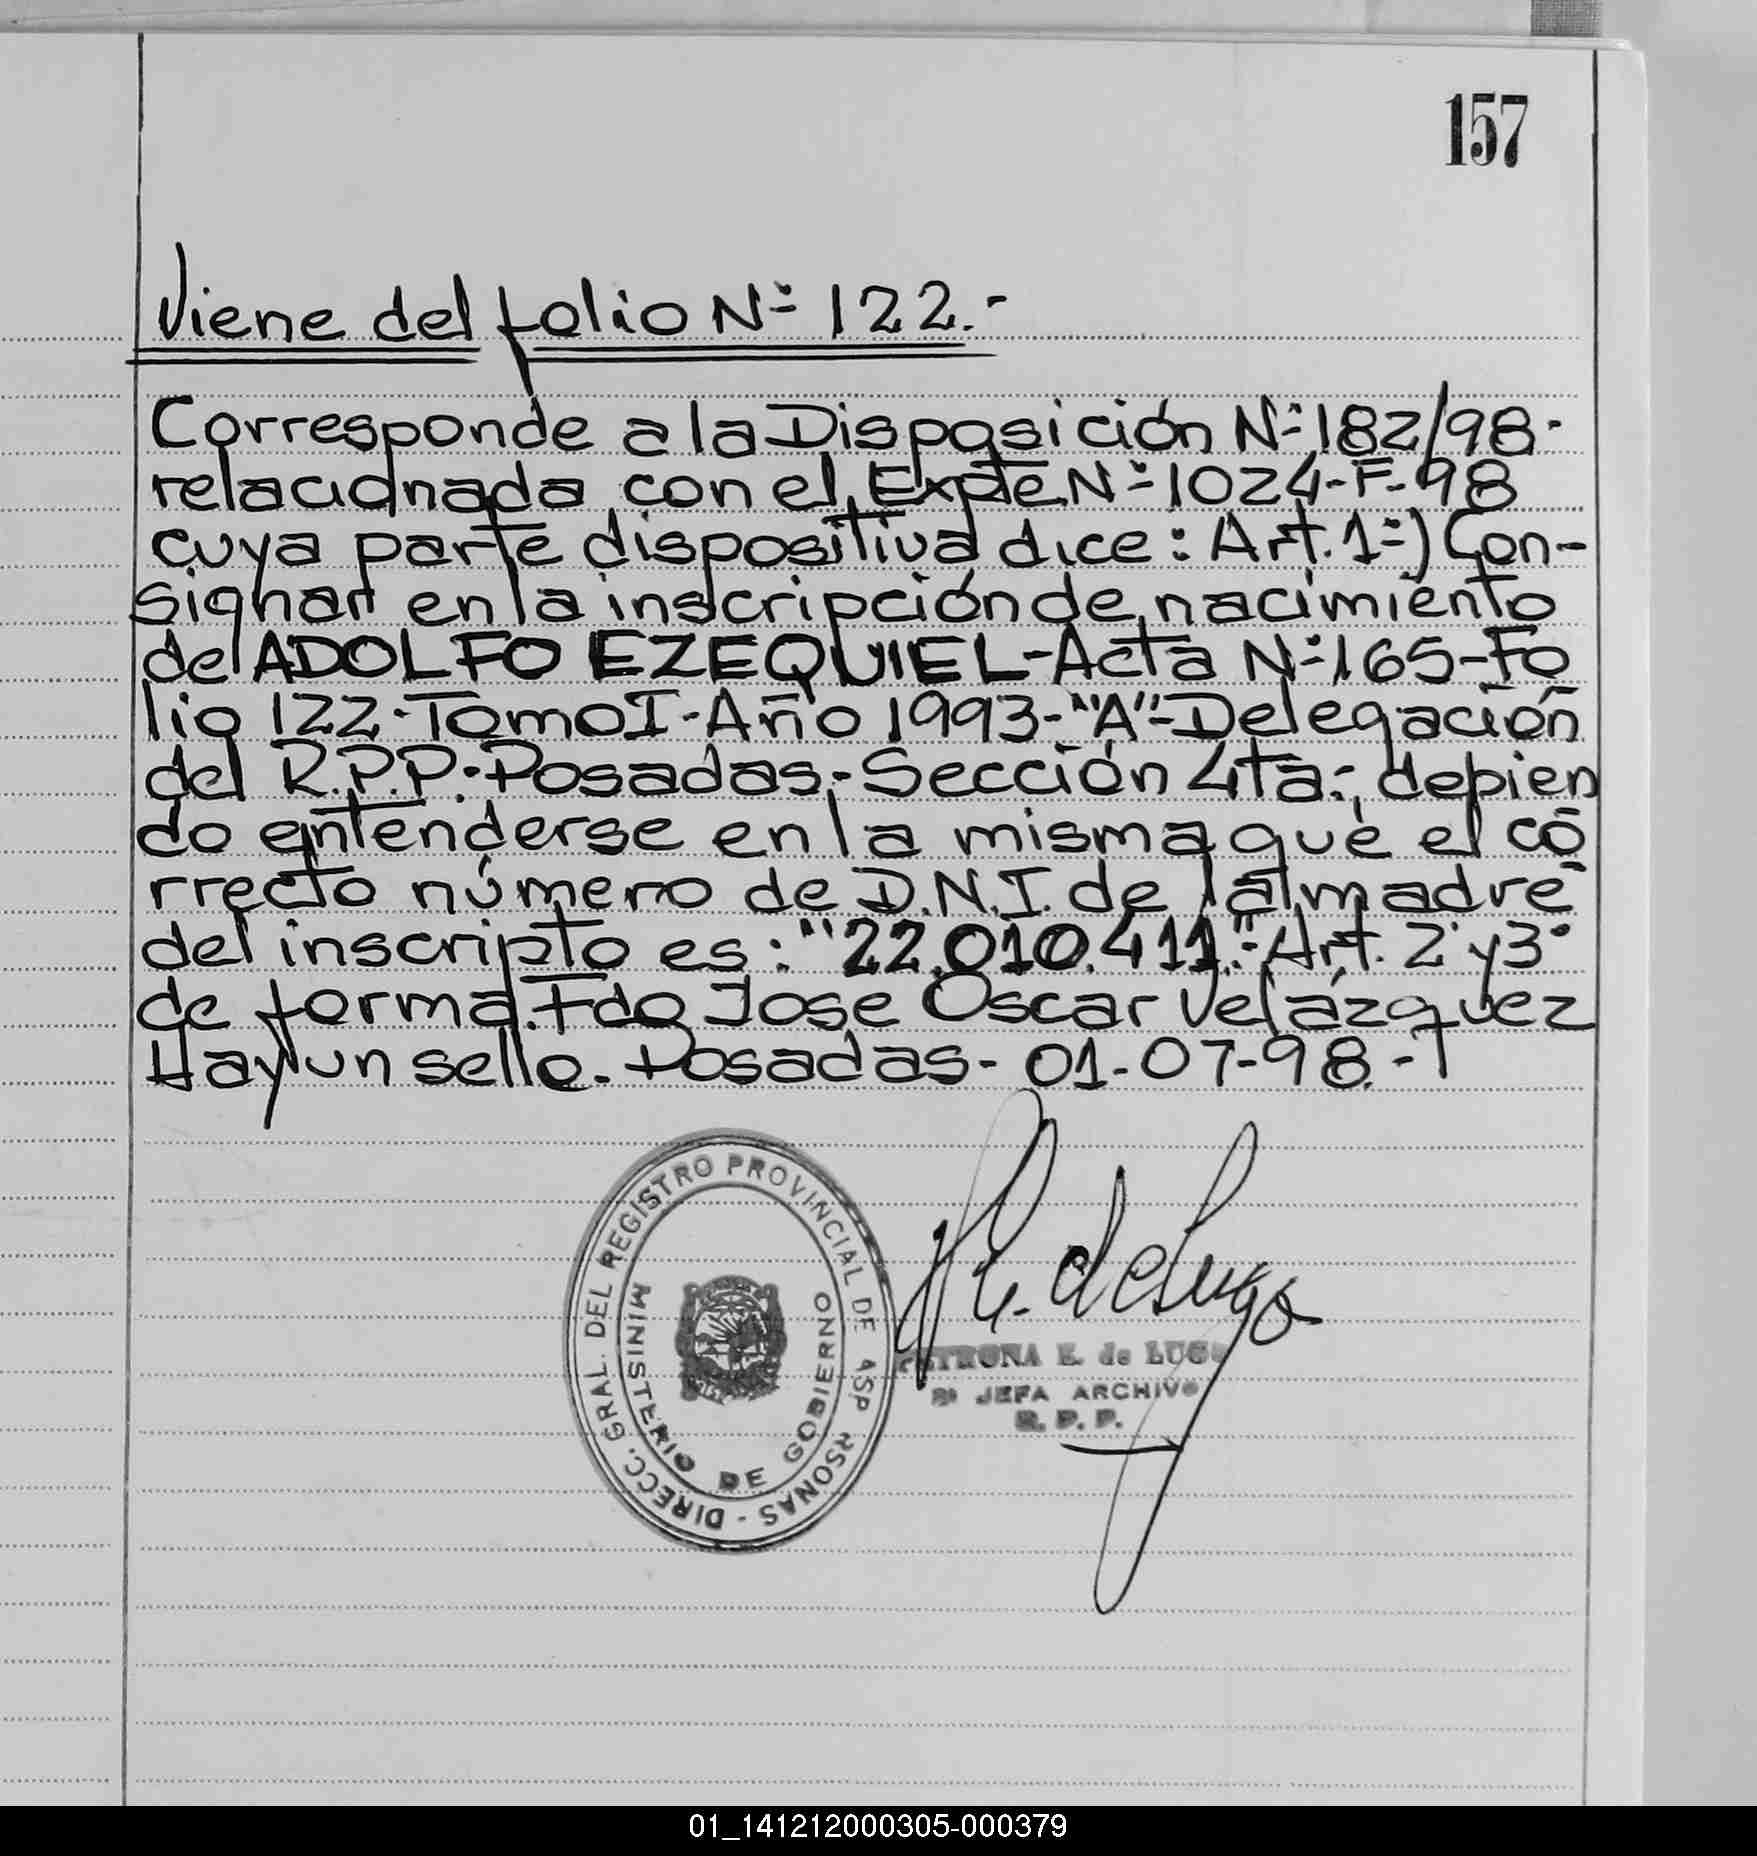 157
Viene del folio Nº 122.-
Corresponde a la Disposición Nº 182/98-
relacionada con el Expte. Nº 1024-F-98
cuya parte dispositiva dice: Art. 1º) Con-
signar en la inscripción de nacimiento
de ADOLFO EZEQUIEL-Acta Nº 165-Fo
lio 122-Tomo I-Año 1993-"A"-Delegación
del R.P.P.-Posadas-Sección 4ta-, debien
do entenderse en la misma que el co
rrecto número de D.N.I. de la madre
del inscripto es: "22.010.411"-Art. 2º y 3º
de forma. Fdo Jose Oscar Velázquez
Hay un sello. Posadas- 01-07-98.-
DIRECC. GRAL. DEL REGISTRO PROVINCIAL DE AS P RSONAS -
MINISTERIO DE GOBIERNO
E. de Lugo
PETRONA E. de LUGO
JEFA ARCHIVO
R. P. P.
01_141212000305-000379